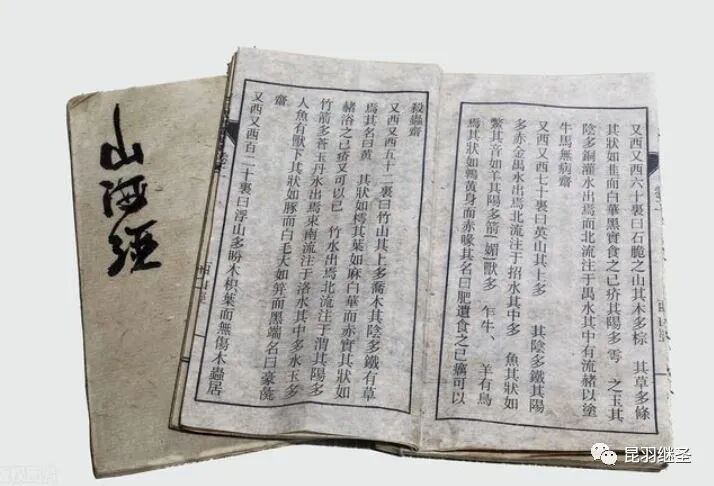 山海經
又西又西六十裏曰石脆之山其木多棕 其草多條
其狀如韭而白華黑實食之已疥其陽多雩 之玉其
陰多銅灌水出焉而北流注于禺水其中有流赭以塗
牛馬無病齋
又西又西七十裏曰英山其上多 其陰多鐵其陽
多赤金禺水出焉北流注于招水其中多 魚其狀如
鱉其音如羊其陽多箭[媚]獸多 乍牛、 羊有鳥
焉其狀如鶉黃身而赤喙其名曰肥遺食之已癘可以
殺蟲齋
又西又西五十二裏曰竹山其上多喬木其陰多鐵有草
焉其名曰黃 其狀如樗其葉如麻白華而赤實其狀如
赭浴之已疥又可以已 竹水出焉北流注于渭其陽多
竹箭多蒼玉丹水出焉東南流注于洛水其中多水玉多
人魚有獸下其狀如豚而白毛大如笄而黑端名曰豪彘
齋
又西又西百二十裏曰浮山多盼木枳葉而無傷木蟲居
西山經
昆羽继圣